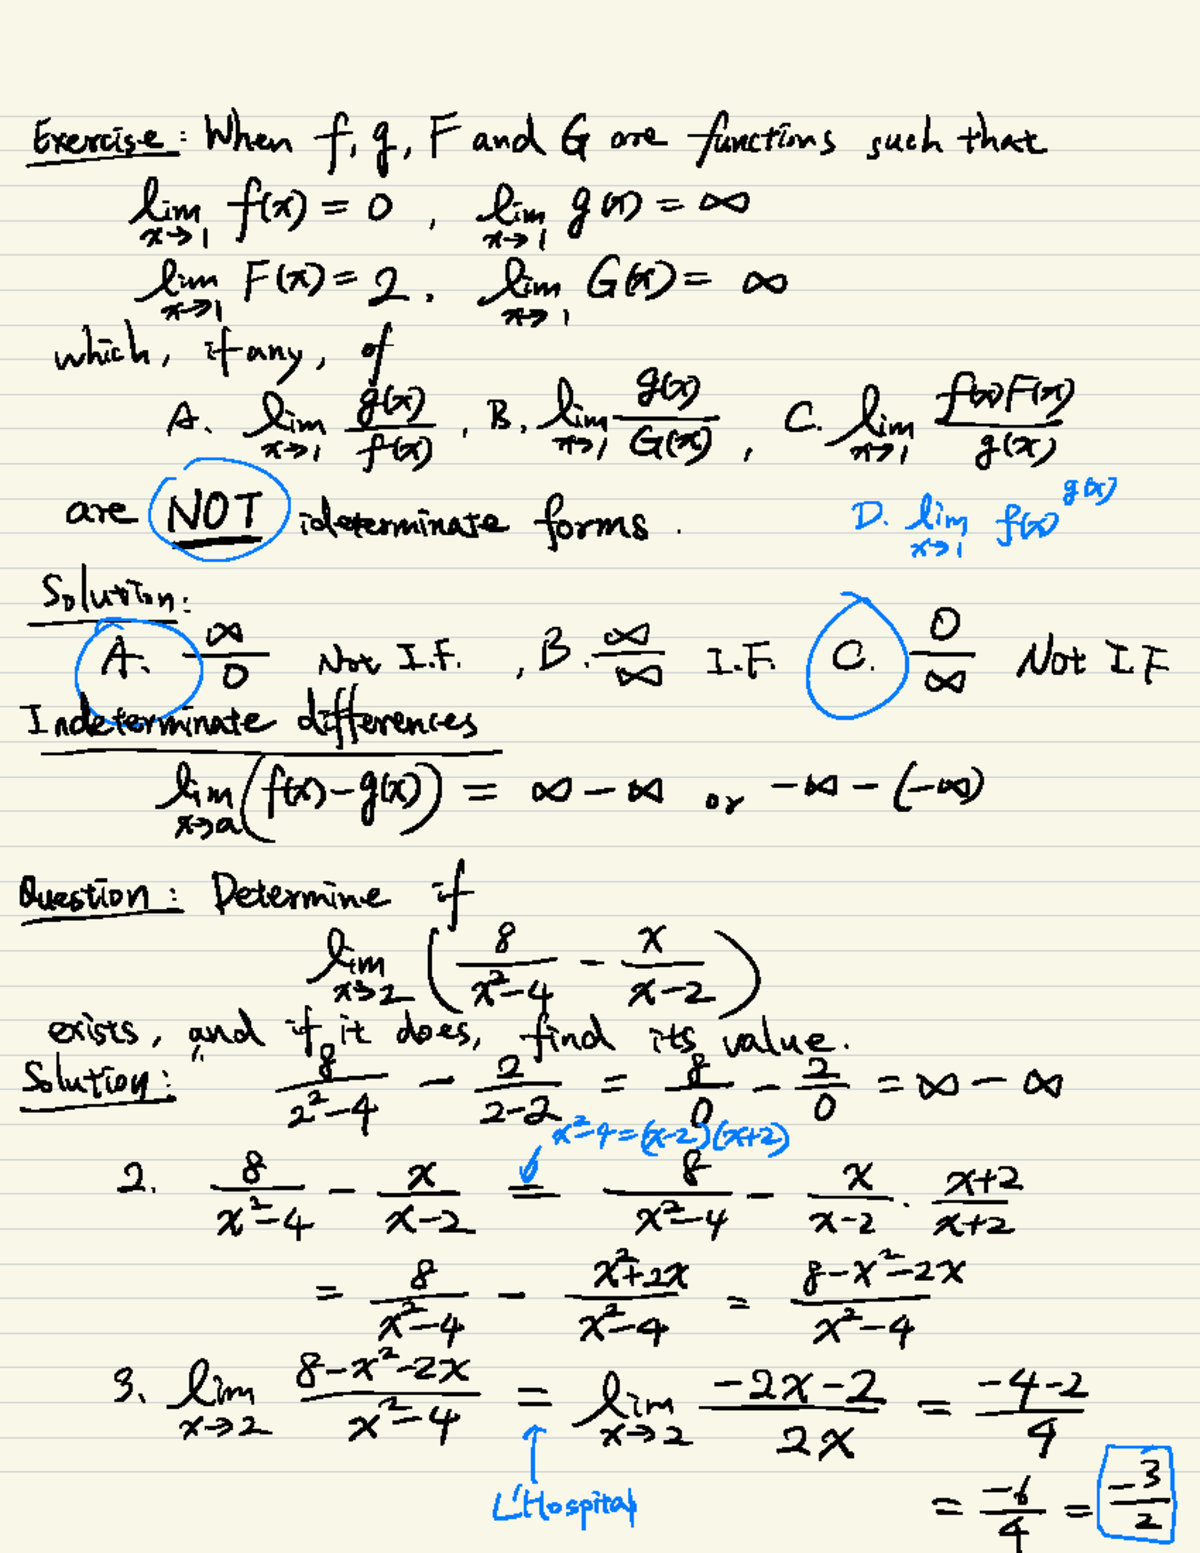 Exercise: When f, g, F and G are functions such that
lim x→1 f(x) = 0 , lim x→1 g(x) = ∞
lim x→1 F(x) = 2, lim x→1 G(x) = ∞
which, if any, of
A. lim x→1 g(x)/f(x) , B. lim x→1 g(x)/G(x) , C. lim x→1 f(x)F(x)/g(x)
are NOT ideterminate forms. D. lim x→1 f(x)^g(x)
Solution:
A. ∞/0 Not I.F. , B. ∞/∞ I.F. C. 0/∞ Not I.F
Indeterminate differences
lim x→a (f(x)-g(x)) = ∞ - ∞ or -∞ - (-∞)
Question: Determine if
lim x→2 (8/(x²-4) - x/(x-2))
exists, and if it does, find its value.
Solution: 8/(2²-4) - 2/(2-2) = 8/0 - 2/0 = ∞ - ∞
x²-4=(x-2)(x+2)
2. 8/(x²-4) - x/(x-2) = 8/(x²-4) - x/(x-2) · (x+2)/(x+2)
= 8/(x²-4) - (x²+2x)/(x²-4) = (8-x²-2x)/(x²-4)
3. lim x→2 (8-x²-2x)/(x²-4) = lim x→2 (-2x-2)/2x = (-4-2)/4
L'Hospital = -6/4 = -3/2